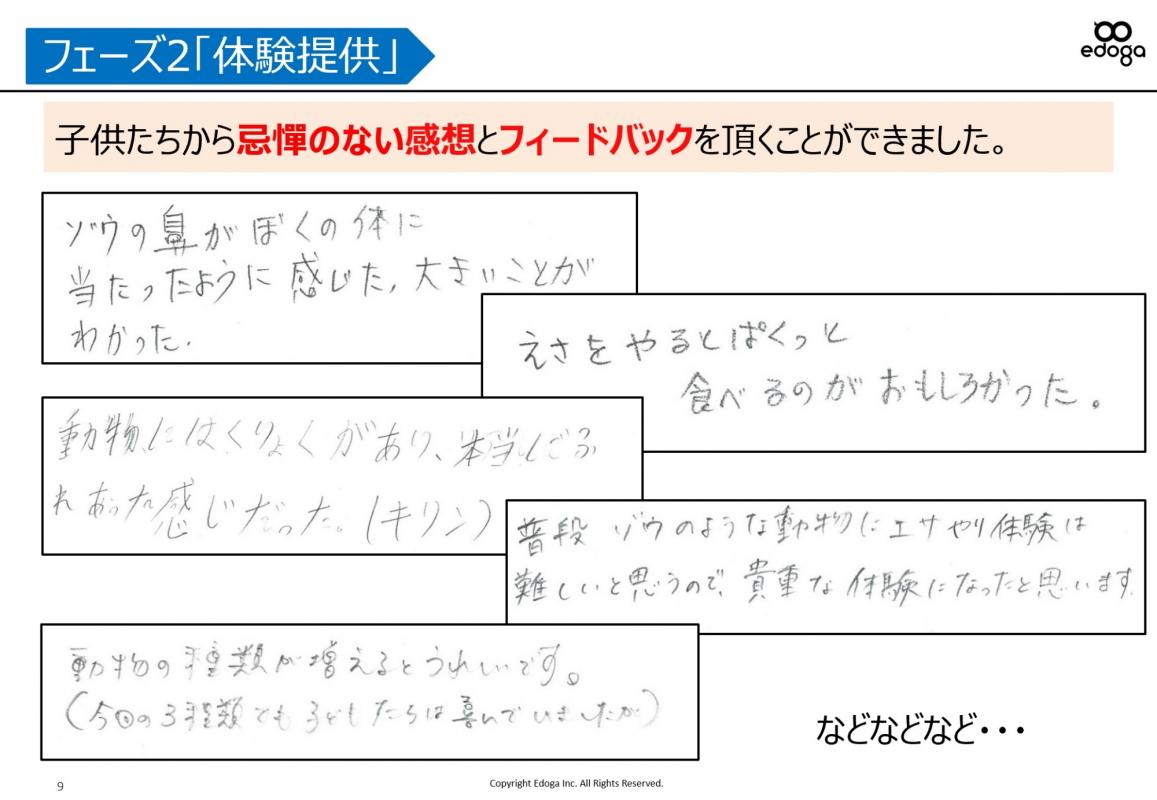 フェーズ2「体験提供」
edoga
子供たちから忌憚のない感想とフィードバックを頂くことができました。
ゾウの鼻がぼくの体に
当たったように感じた,大きいことが
わかった.
えさをやるとぱくっと
食べるのがおもしろかった。
動物にはくりょくがあり、本当にふ
れあった感じだった。(キリン)
普段 ゾウのような動物にエサやり体験は
難しいと思うので、貴重な体験になったと思います.
動物の種類が増えるとうれしいです。
(今回の3種類とも子どもたちは喜んでいましたが)
などなどなど・・・
9
Copyright Edoga Inc. All Rights Reserved.